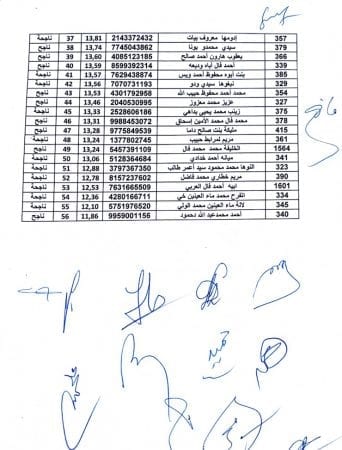 357 إدومها معروف بيات 2143372432 13,81 37 ناجحة
379 سيدي محمدو بونا 7745043862 13,74 38 ناجح
366 يعقوب هارون أحمد صالح 4085123185 13,60 39 ناجح
339 أحمد فال أباه وديعه 8599392314 13,59 40 ناجح
385 بنت أبوه محفوظ أحمد ويس 7629438874 13,57 41 ناجحة
329 نيغوها سيدي ودو 7070731193 13,56 42 ناجحة
354 محمد أحمد محفوظ حبيب الله 4301792958 13,53 43 ناجح
327 عزيز محمد معزوز 2040530995 13,46 44 ناجح
375 زينب محمد يحيى بداهي 2528606186 13,33 45 ناجحة
378 محمد فال محمد الأمين إسحاق 9988453072 13,31 46 ناجح
415 مليكة بنت صالح داما 9775849539 13,28 47 ناجحة
361 مريم لمرابط حبيب 1377802745 13,24 48 ناجحة
1564 الخليفة محمد محمد فال 5457391109 13,24 49 ناجح
341 ميانه أحمد خدادي 5128364684 13,06 50 ناجحة
323 النوها محمد محمود سيد أعمر طالب 3797367350 12,88 51 ناجحة
390 مريم خطاري محمد فاضل 8157237602 12,78 52 ناجحة
1601 ابيه أحمد فال العربي 7631665509 12,53 53 ناجح
334 أتفرح محمد ماء العينين خي 4280166711 12,36 54 ناجحة
345 لالة ماء العينين محمد الولي 5751976520 12,10 55 ناجحة
340 أحمد محمدعبد الله دحمود 9959001156 11,86 56 ناجح